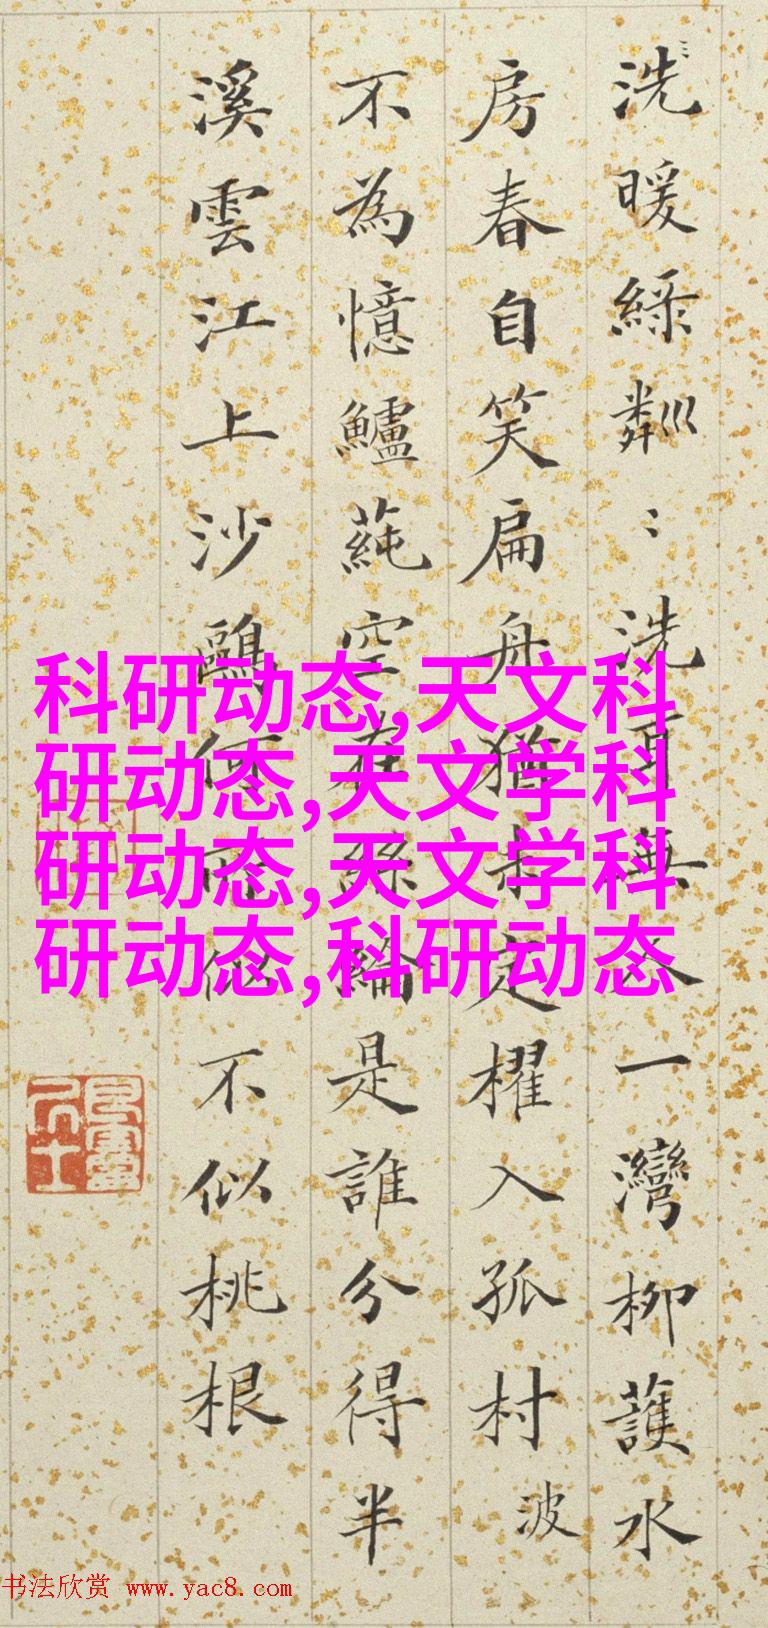 洗暖綵粼〻洗耳無人一灣柳護水
房春自笑扁舟猶未定櫂入孤村波
不為憶鱸蒓空在絲綸是誰分得半
溪雲江上沙鷗何所似不似桃根
科研动态,天文科
研动态,天文学科
研动态,天文学科
研动态,科研动态
书法欣赏 www.yac8.com